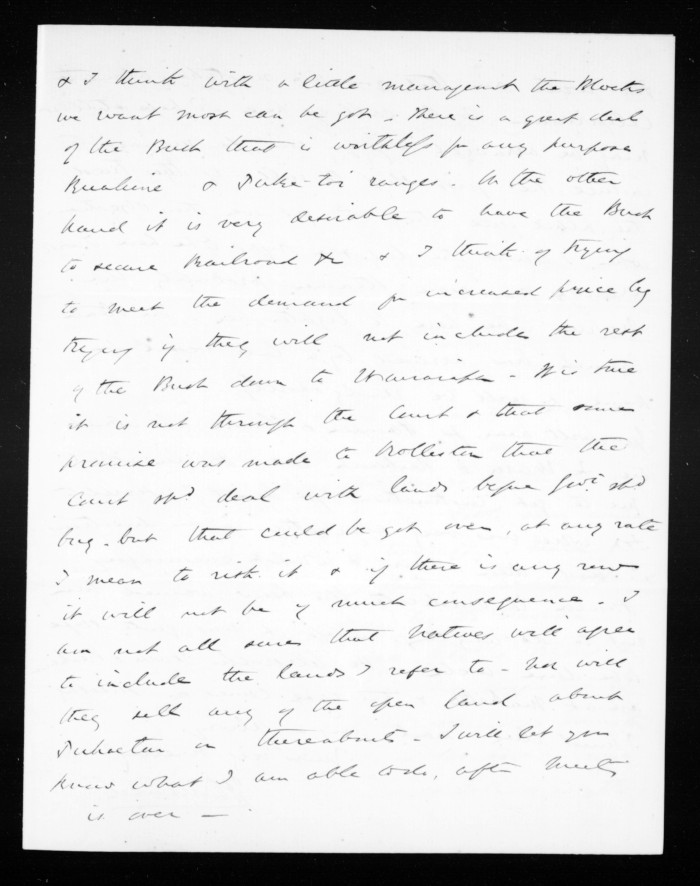 & I think with a little management the Blocks
we want most can be got - There is a great deal
of the Bush that is worthless for any purpose
Ruahine & Puke-toi ranges. On the other
hand it is very desirable to have the Bush
to secure Railroad &c & I think of trying
to meet the demand for increased price by
trying if they will not include the rest
of the Bush down to Wairarapa - It is true
it is not through the Court & that some
promise was made to Rolleston that the
Court shd deal with lands before Govt shd
buy - but that could be got over, at any rate
I mean to risk it & if there is any row
it will not be of much consequence. I
am not all sure that Natives will agree
to include the lands I refer to - nor will
they sell any of the open land about
or thereabouts - I will let you
know what I am able to do, after meeting
is over -